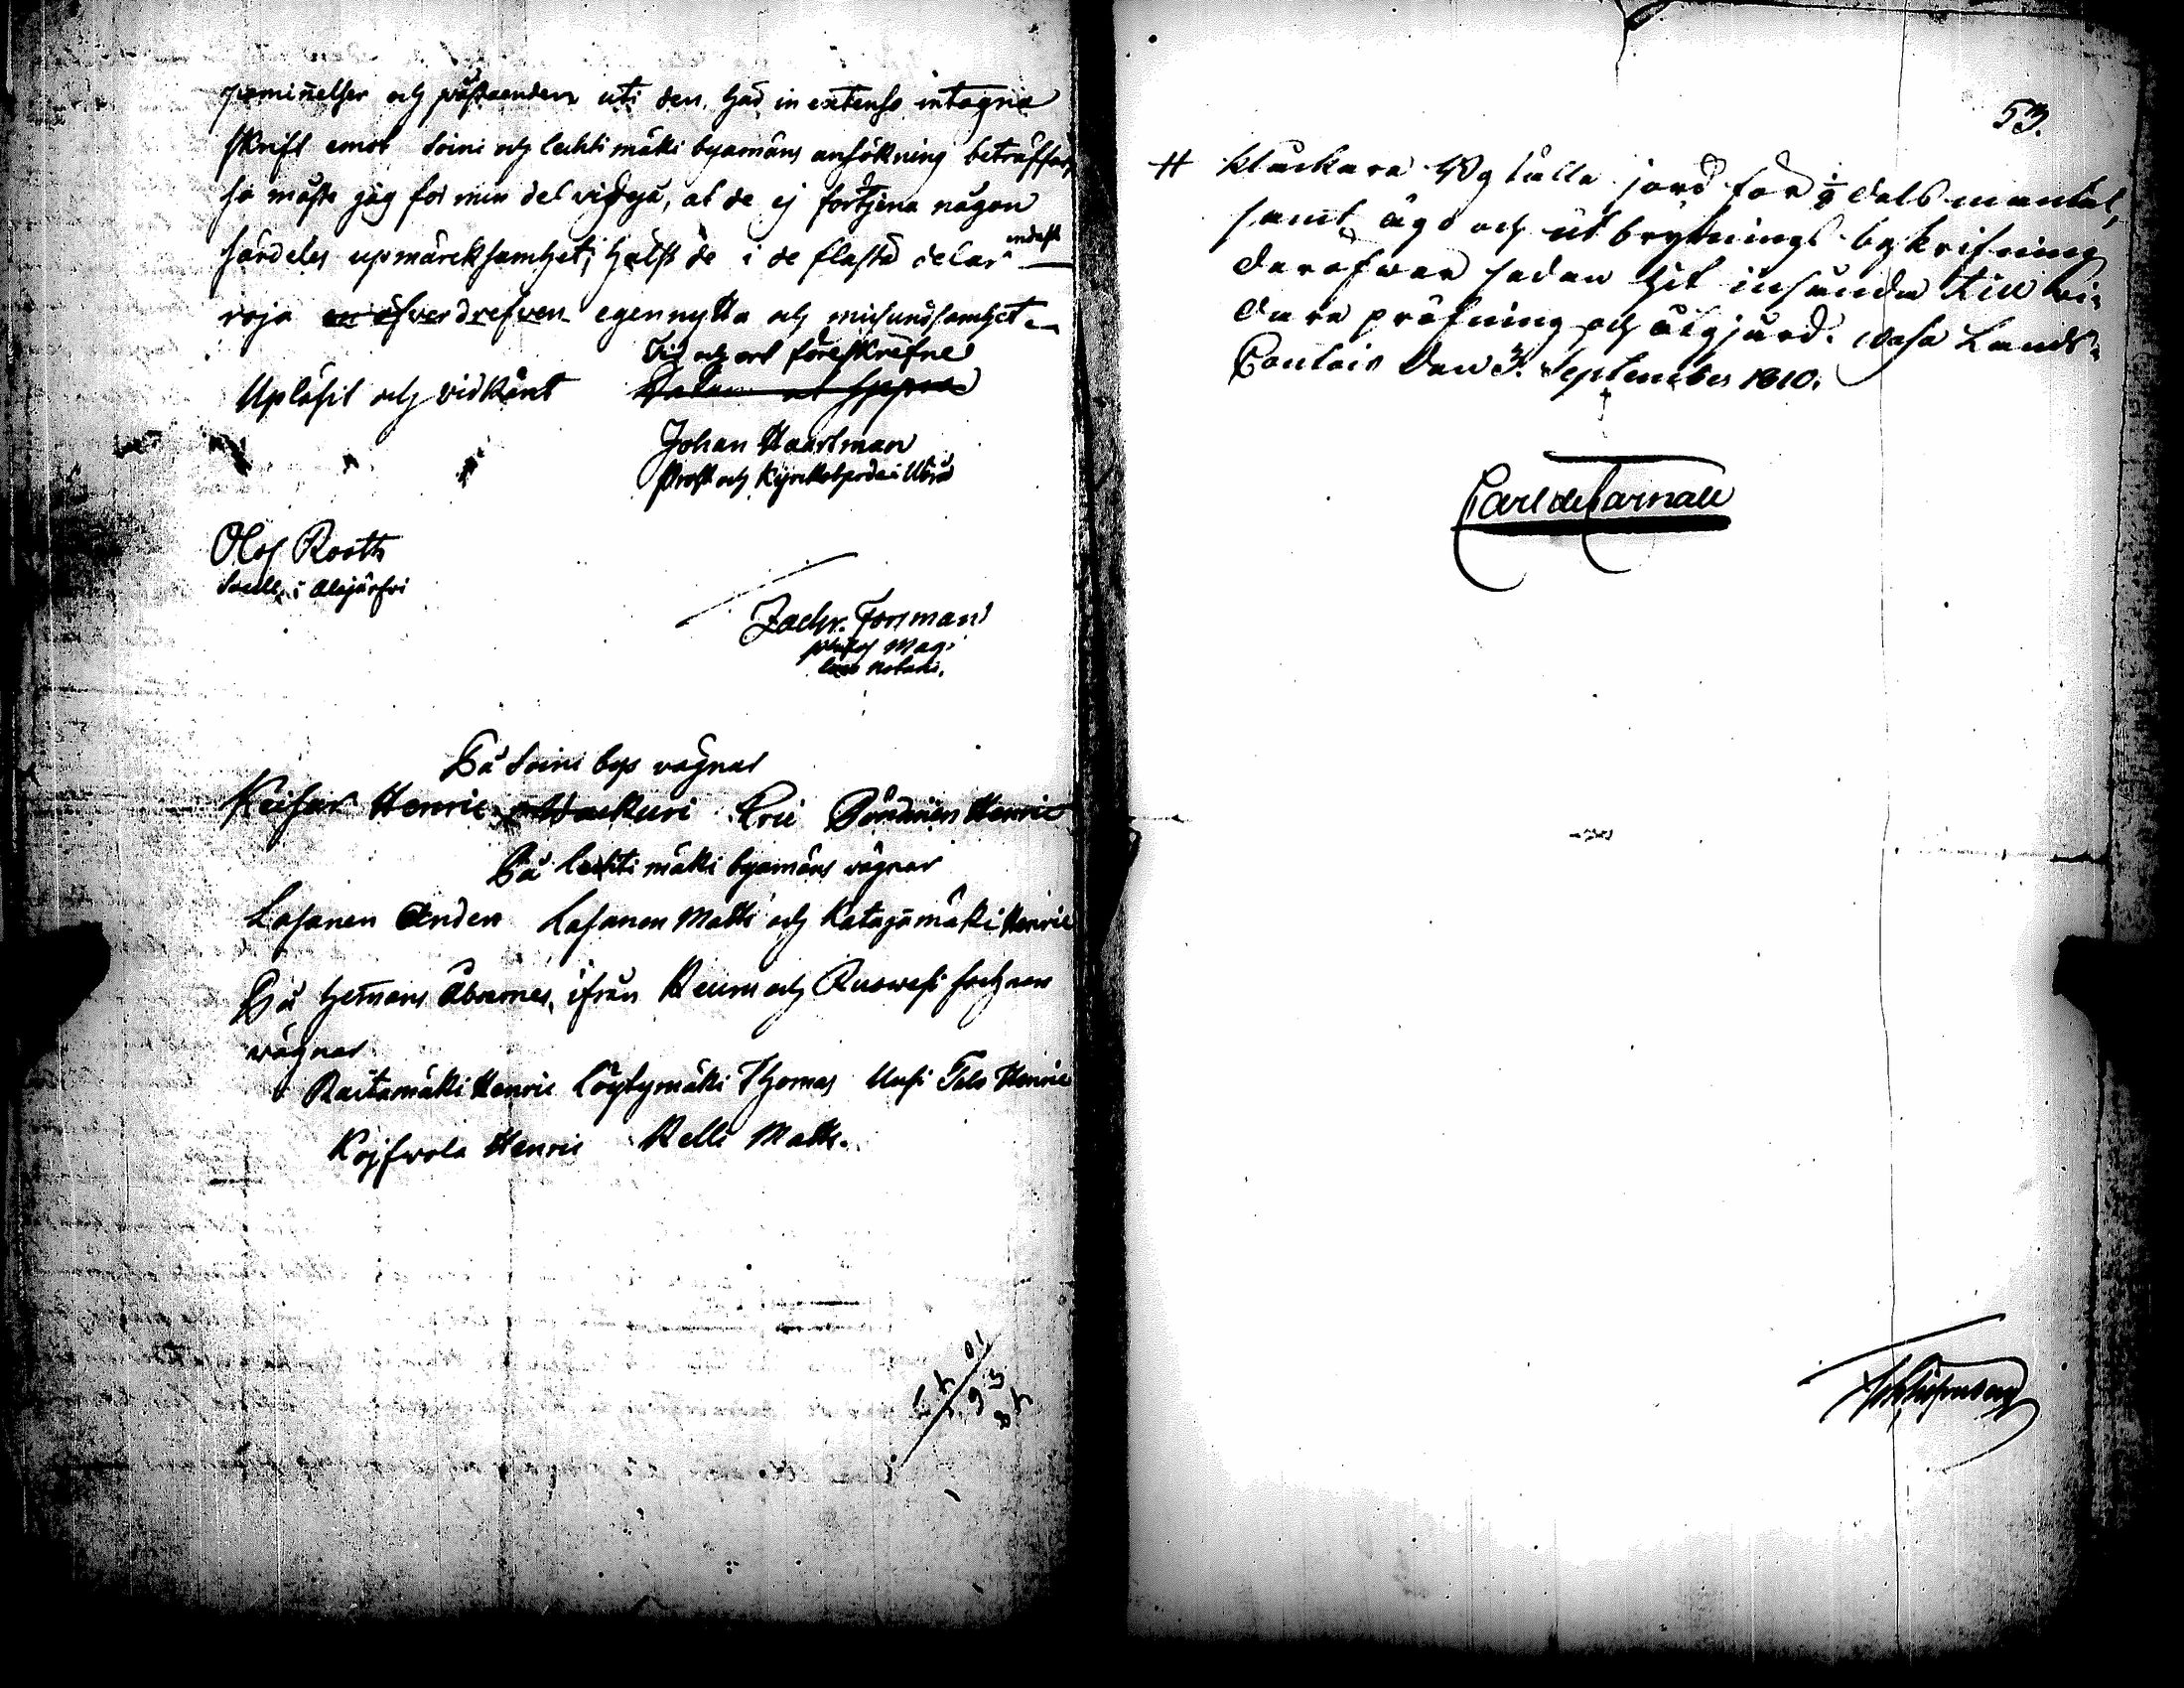 påminnelser och påståenden uti den, här in extenso intagna
skrift emot Soini och lechtimäki byamäns ansökning beträffar,
så måste jag for min del vidgå, at de ej förtjena någon
särdeles upmärcksamhet; hälst de i de flästa delar endast
röja en öfverdrefven egennytta och missundsamhet.
Tid och ort föreskrefne
Upläsit och vidkänt
Johan Haartman
Prost och Kyrckoherde i Wörå
Olof Rooth
Sacell. i Alajärfvi
Zachr. Forsman
philos Mag.
loco notarii.
På Soini bys vägnar
Keisar Henric Kuri Eric Pöndinen Henric
På lechtimäki byamäns vägnar
Lasanen Anders Lasanen Matts och Katajamäki Henric
På hemans Åboernes ifrån Keuru och Ruowesi sochnar
vägnar
Raitamäki Henric Löytymäki Thomas Uusi Talo Henric
Kojfwola Henric Kelli Matts.
53.
# kluckare Bohlstället jord för 1/8 dels mantal,
samt ägo och utbrytnings beskrifning
deröfwer sedan hit insända till wi-
dare pröfning och åtgjärd. Wasa Lands-
Contoir den 3. September 1810.
Carl de Carnall